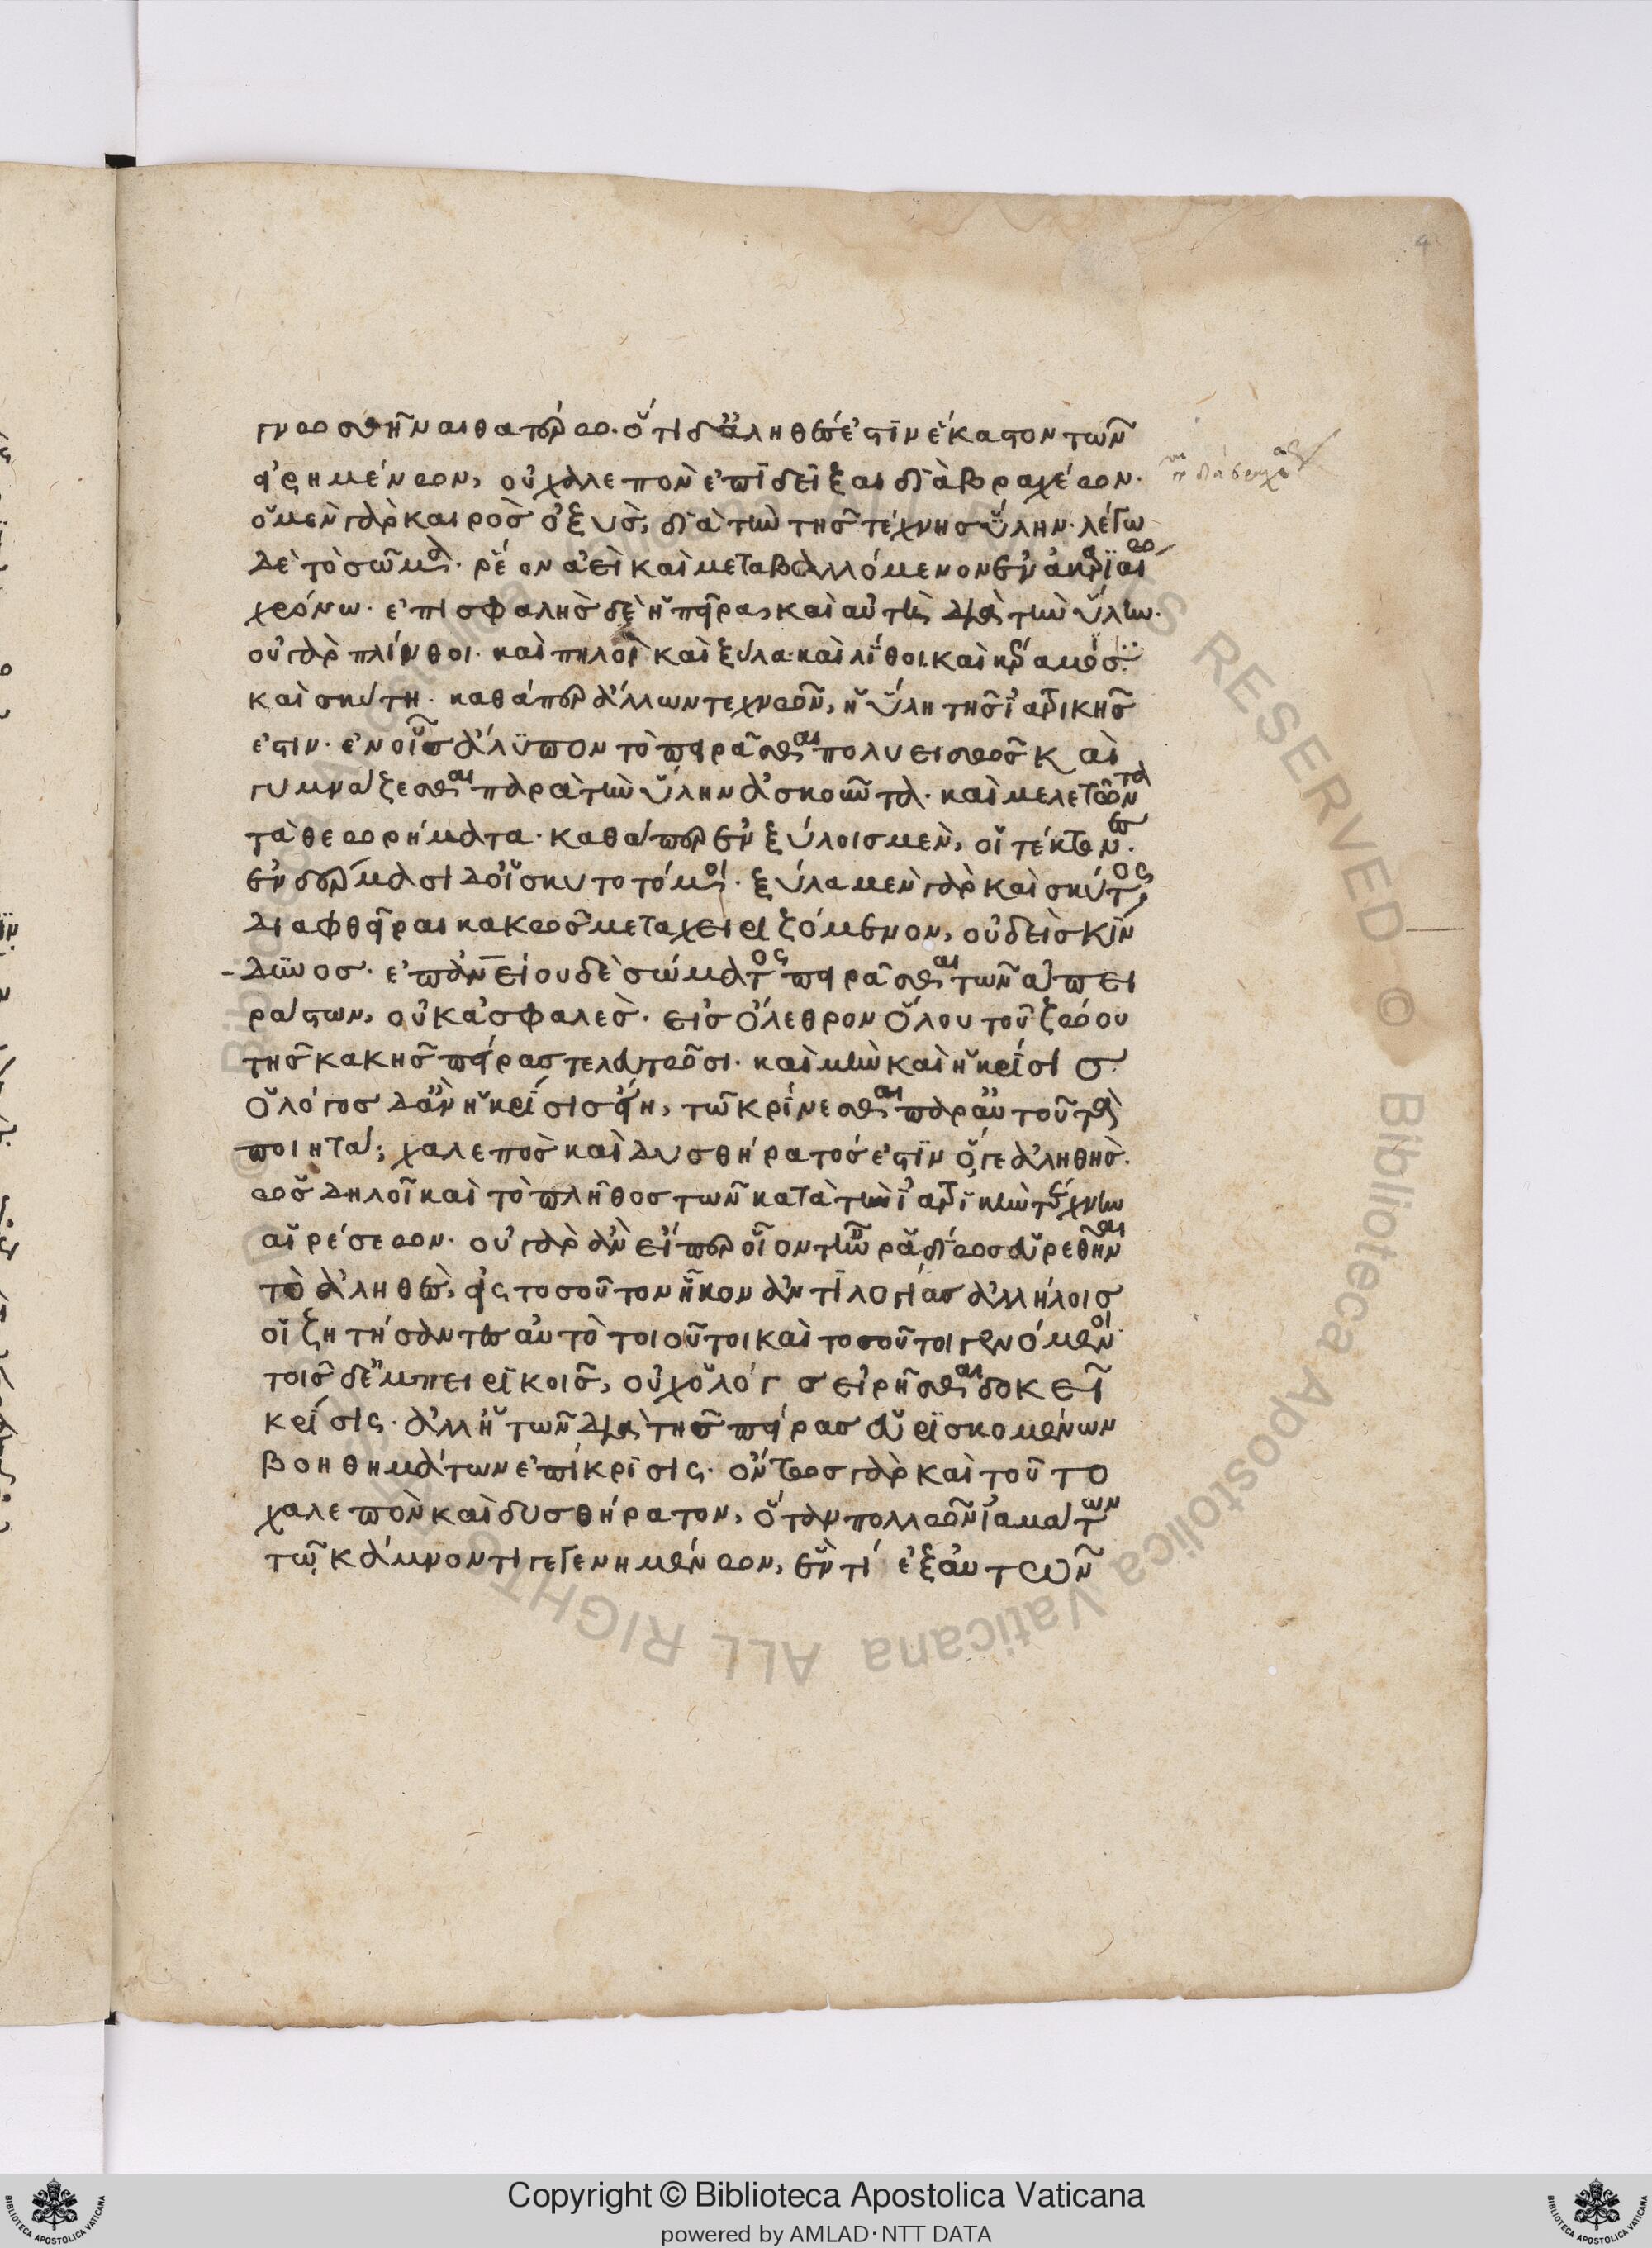 γνωσθῆναι θατέρω. ὅτι δ' ἀληθές ἐστιν ἕκαστον τῶν
εἰρημένων, οὐ χαλεπὸν ἐπιδεῖξαι διὰ βραχέων.
ὁ μὲν γὰρ καιρὸς ὀξὺς, διὰ τὴν τῆς τέχνης ὕλην. λέγω
δὲ τὸ σῶμα. ῥέον ἀεὶ καὶ μεταβαλλόμενον ἐν ἀκαριαίω
χρόνω. ἐπισφαλὴς δὲ ἡ πεῖρα, καὶ αὐτὴ διὰ τὴν ὕλην.
οὐ γὰρ πλίνθοι. καὶ πηλοὶ καὶ ξύλα καὶ λίθοι καὶ κέραμος
καὶ σκύτη. καθάπερ ἄλλων τεχνῶν, ἡ ὕλη τῆς ἰατρικῆς
ἐστιν. ἐν οἷς ἄλυπον τὸ πειρᾶσθαι πολυειδῶς καὶ
γυμνάζεσθαι παρὰ τὴν ὕλην ἀσκοῦντα. καὶ μελετῶντα
τὰ θεωρήματα. καθάπερ ἐν ξύλοις μὲν, οἱ τέκτονες.
ἐν δέρμασι δ' οἱ σκυτοτόμοι. ξύλα μὲν γὰρ καὶ σκύτος,
διαφθεῖραι κακῶς μεταχειριζόμενον, οὐδεὶς κίν
δυνος. ἐπ' ἀνθρωπείου δὲ σώματος πειρᾶσθαι τῶν ἀπει
ράστων, οὐκ ἀσφαλές. εἰς ὄλεθρον ὅλου τοῦ ζώου
τῆς κακῆς πείρας τελευτώσης. καὶ μὴν καὶ ἡ κρίσις
ὁ λόγος δ' ἂν ἡ κρίσις εἴη, τῶ κρίνεσθαι παρ' αὐτοῦ τὰ
ποιητά; χαλεπὸς καὶ δυσθήρατός ἐστιν ὅ γε ἀληθής.
ὡς δηλοῖ καὶ τὸ πλῆθος τῶν κατὰ τὴν ἰατρικὴν τέχνην
αἱρέσεων. οὐ γὰρ ἂν εἴπερ οἷόν τ' ἦν ῥαδίως εὑρεθῆναι
τὸ ἀληθές, εἰς τοσοῦτον ἧκον ἀντιλογίας ἀλλήλοις
οἱ ζητήσαντες αὐτὸ τοιοῦτοι καὶ τοσοῦτοι γενόμενοι.
τοῖς δ' ἐμπειρικοῖς, οὐχ ὁ λόγος εἰρῆσθαι δοκεῖ
κρίσις. ἀλλ' ἡ τῶν διὰ τῆς πείρας εὑρισκομένων
βοηθημάτων ἐπίκρισις. ὄντως γὰρ καὶ τοῦτο
χαλεπὸν καὶ δυσθήρατον, ὅταν πολλῶν ἰαμάτων
τῶ κάμνοντι γεγενημένων, ἕν τι ἐξ αὐτῶν
Copyright © Biblioteca Apostolica Vaticana
powered by AMLAD·NTT DATA